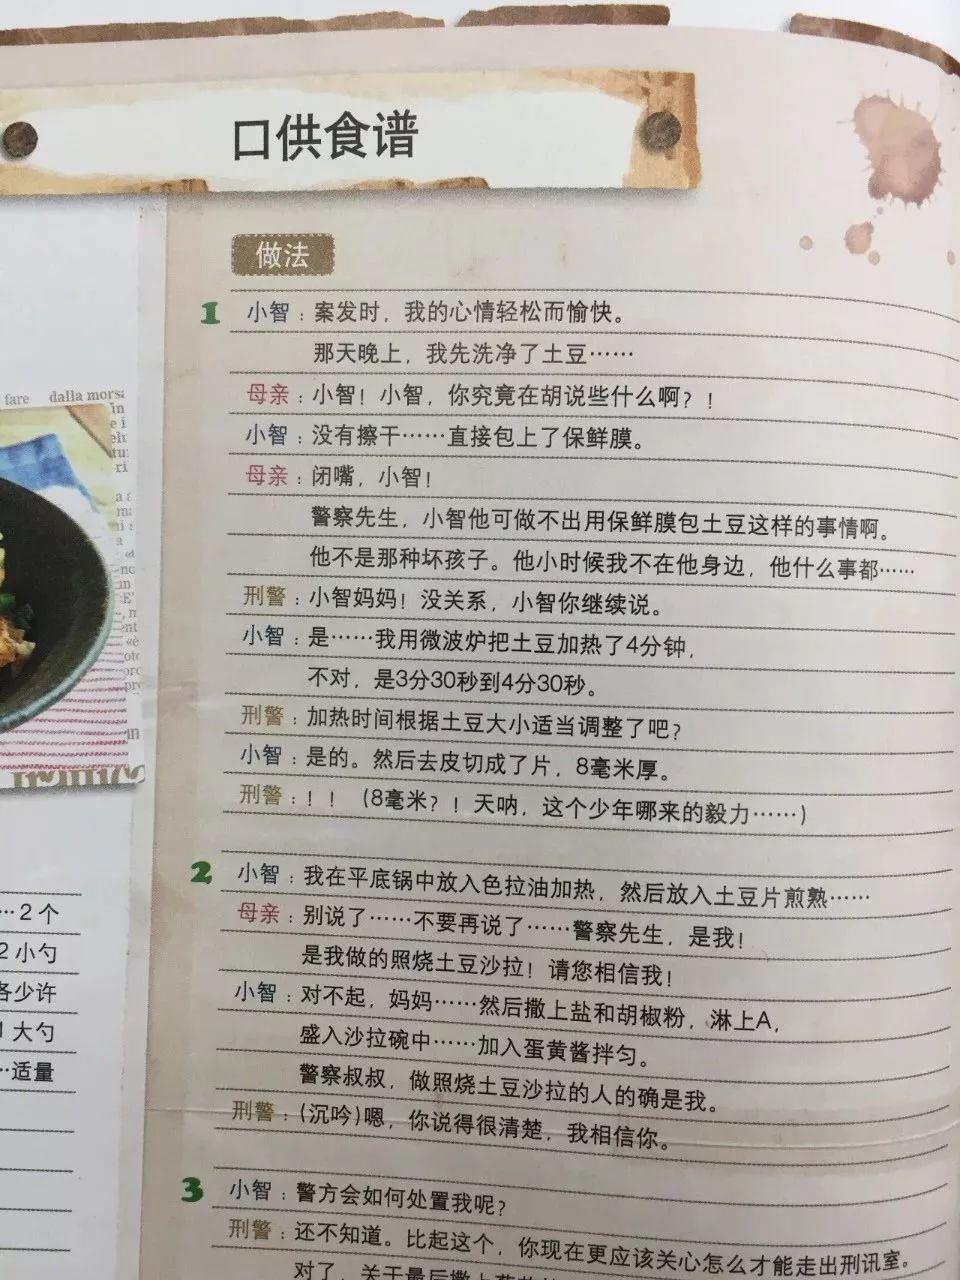 口供食谱
做法
1 小智：案发时，我的心情轻松而愉快。
那天晚上，我先洗净了土豆……
母亲：小智！小智，你究竟在胡说些什么啊？！
小智：没有擦干……直接包上了保鲜膜。
母亲：闭嘴，小智！
警察先生，小智他可做不出用保鲜膜包土豆这样的事情啊。
他不是那种坏孩子。他小时候我不在他身边，他什么事都……
刑警：小智妈妈！没关系，小智你继续说。
小智：是……我用微波炉把土豆加热了4分钟，
不对，是3分30秒到4分30秒。
刑警：加热时间根据土豆大小适当调整了吧？
小智：是的。然后去皮切成了片，8毫米厚。
刑警：！！（8毫米？！天呐，这个少年哪来的毅力……）
2 小智：我在平底锅中放入色拉油加热，然后放入土豆片煎熟……
母亲：别说了……不要再说了……警察先生，是我！
是我做的照烧土豆沙拉！请您相信我！
小智：对不起，妈妈……然后撒上盐和胡椒粉，淋上A，
盛入沙拉碗中……加入蛋黄酱拌匀。
警察叔叔，做照烧土豆沙拉的人的确是我。
刑警：(沉吟)嗯，你说得很清楚，我相信你。
3 小智：警方会如何处置我呢？
刑警：还不知道。比起这个，你现在更应该关心怎么才能走出刑讯室。
对了，关于最后撒上
fare dalla mors
…2 个
2 小勺
各少许
1 大勺
…适量